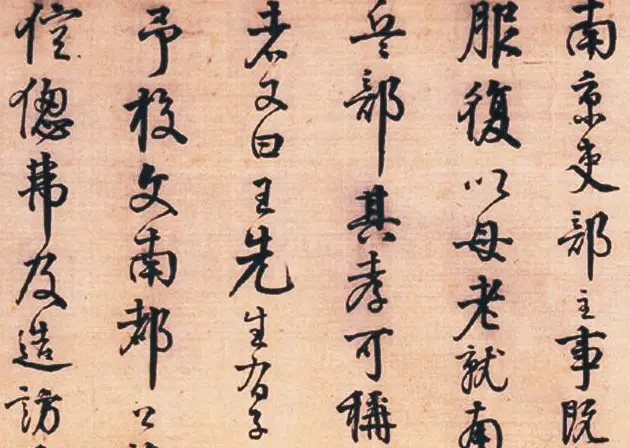 南京吏部主事既
服復以母老就南
兵部其孝可稱
者文曰王先生有子
予校文南都公
倥傯弗及造訪